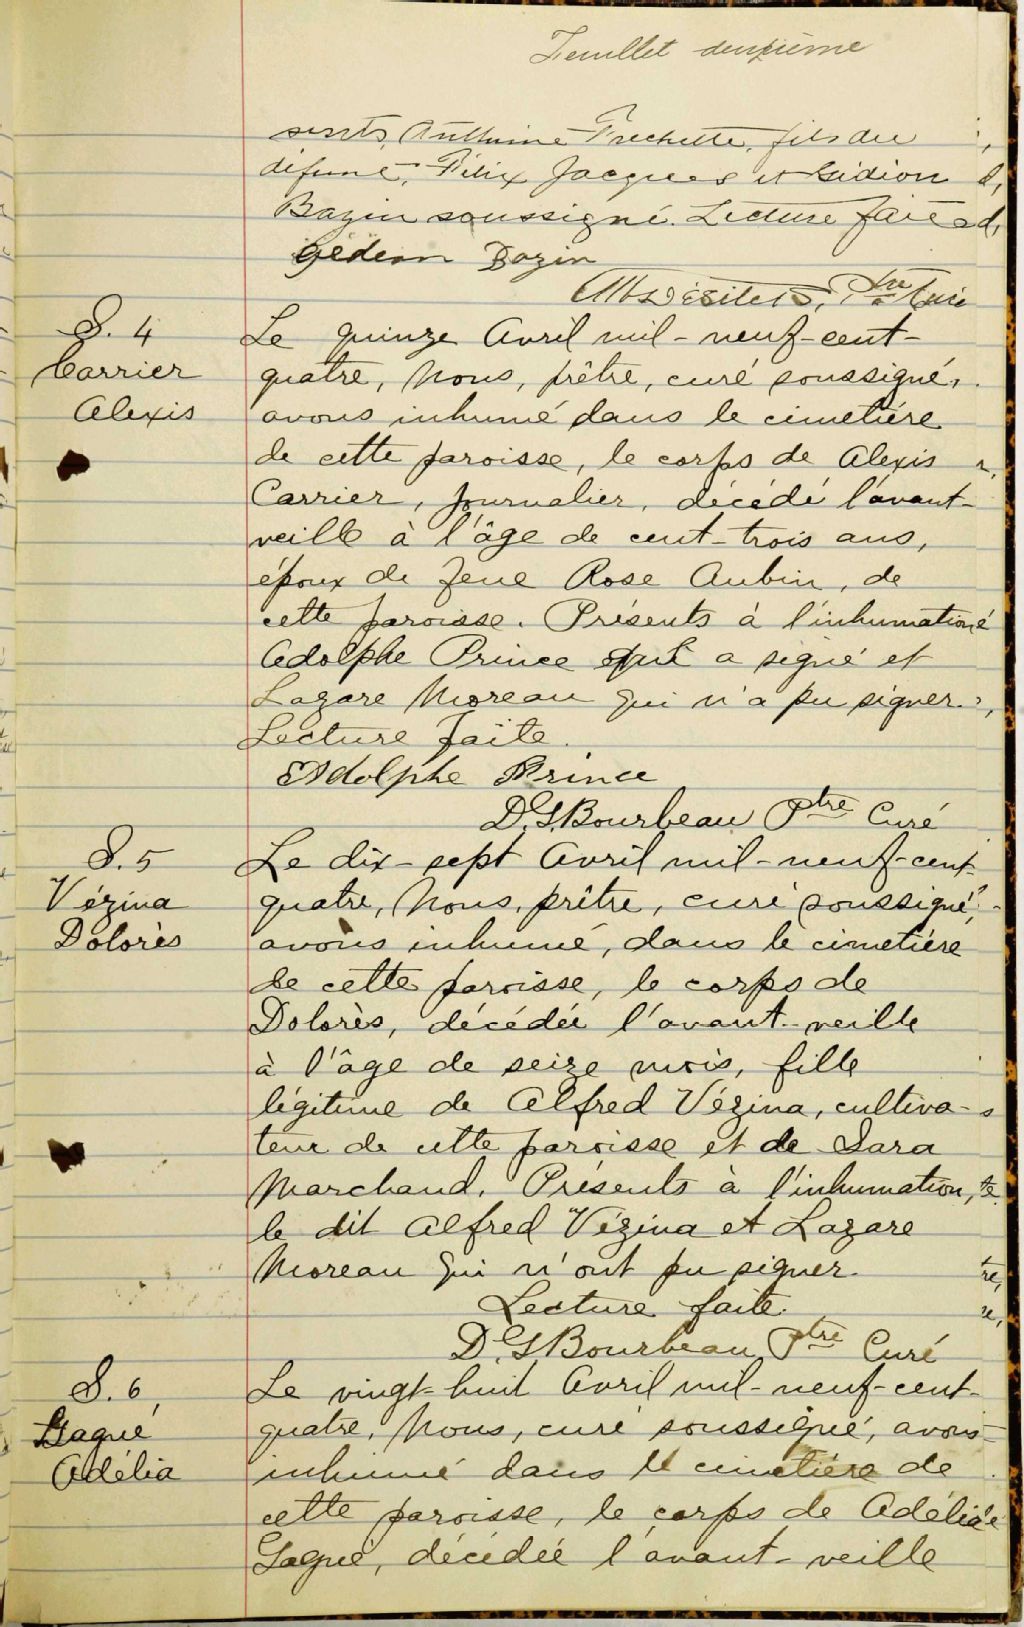 Feuillet deuxième
sents, Anthime Frechette, fils du
défunt, Félix Jacques et Gédion
Bazin soussigné. Lecture faite
Gédéon Bazin
Ptre Curé
S. 4
Carrier
Alexis
Le quinze Avril mil-neuf-cent-
quatre, Nous, prêtre, curé soussigné,
avons inhumé dans le cimetière
de cette paroisse, le corps de Alexis
Carrier, journalier, décédé l'avant-
veille à l'âge de cent-trois ans,
époux de feue Rose Aubin, de
cette paroisse. Présents à l'inhumation
Adolphe Prince qui a signé et
Lazare Moreau qui n'a pu signer.
Lecture faite.
Adolphe Prince
D.G. Bourbeau Ptre Curé
S. 5
Vézina
Dolorès
Le dix-sept Avril mil-neuf-cent-
quatre, Nous, prêtre, curé soussigné,
avons inhumé, dans le cimetière
de cette paroisse, le corps de
Dolorès, décédée l'avant-veille
à l'âge de seize mois, fille
légitime de Alfred Vézina, cultiva-
teur de cette paroisse et de Sara
Marchand. Présents à l'inhumation,
le dit Alfred Vézina et Lazare
Moreau qui n'ont pu signer.
Lecture faite.
D.G. Bourbeau, Ptre Curé
S. 6,
Gagné
Adélia
Le vingt-huit Avril mil-neuf-cent-
quatre, Nous, curé soussigné, avons
inhumé dans le cimetière de
cette paroisse, le corps de Adélia
Gagné, décédée l'avant-veille